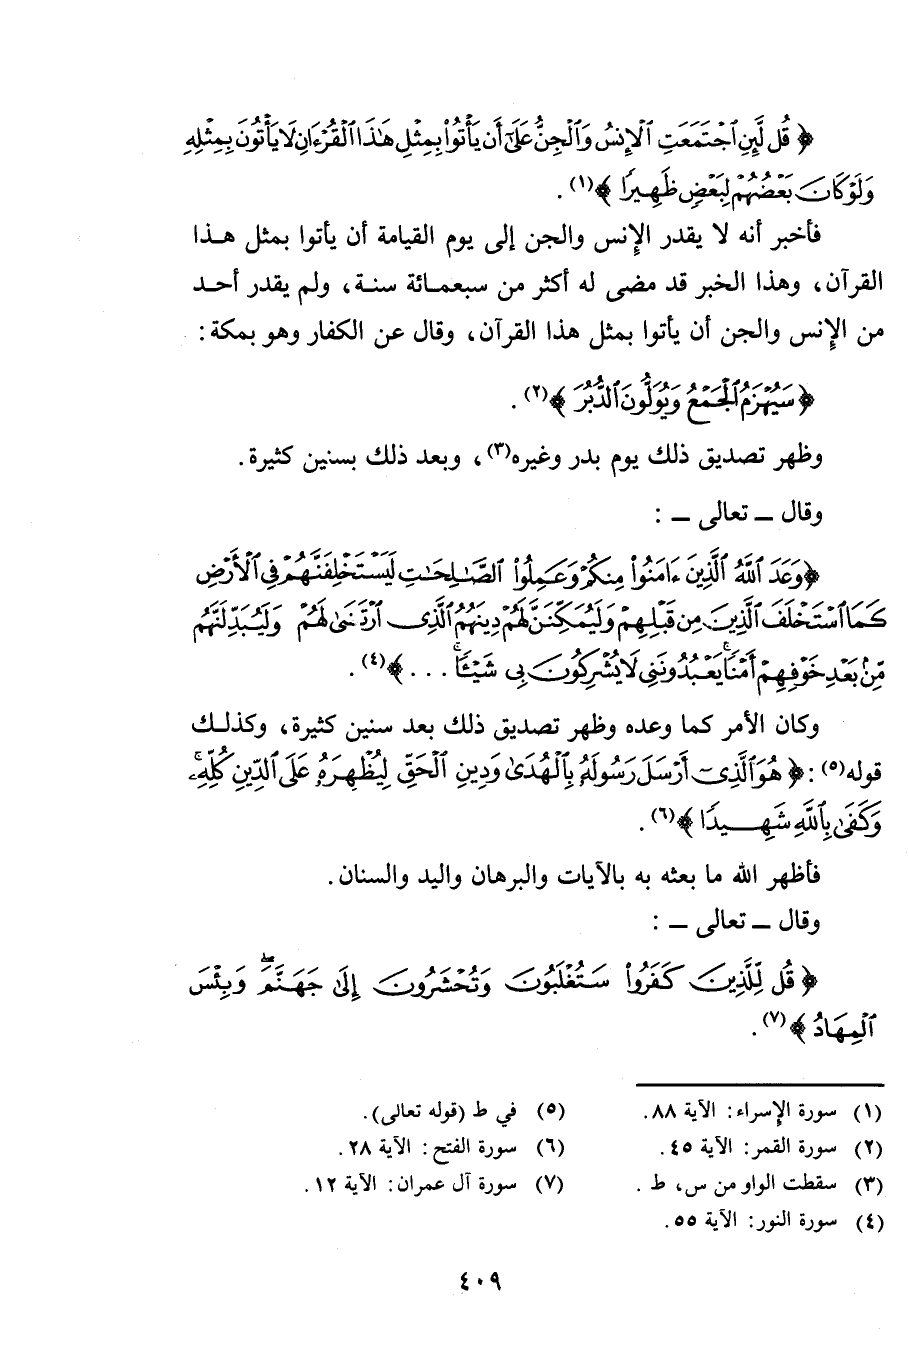 ﴿ قُل لَّئِنِ ٱجْتَمَعَتِ ٱلْإِنسُ وَٱلْجِنُّ عَلَىٰٓ أَن يَأْتُوا۟ بِمِثْلِ هَٰذَا ٱلْقُرْءَانِ لَا يَأْتُونَ بِمِثْلِهِۦ
وَلَوْ كَانَ بَعْضُهُمْ لِبَعْضٍ ظَهِيرًا ﴾(١) .
فأخبر أنه لا يقدر الإنس والجن إلى يوم القيامة أن يأتوا بمثل هذا
القرآن، وهذا الخبر قد مضى له أكثر من سبعمائة سنة، ولم يقدر أحد
من الإنس والجن أن يأتوا بمثل هذا القرآن، وقال عن الكفار وهو بمكة:
﴿ سَيُهْزَمُ ٱلْجَمْعُ وَيُوَلُّونَ ٱلدُّبُرَ ﴾(٢) .
وظهر تصديق ذلك يوم بدر وغيره(٣)، وبعد ذلك بسنين كثيرة.
وقال ـ تعالى ـ :
﴿ وَعَدَ ٱللَّهُ ٱلَّذِينَ ءَامَنُوا۟ مِنكُمْ وَعَمِلُوا۟ ٱلصَّٰلِحَٰتِ لَيَسْتَخْلِفَنَّهُمْ فِى ٱلْأَرْضِ
كَمَا ٱسْتَخْلَفَ ٱلَّذِينَ مِن قَبْلِهِمْ وَلَيُمَكِّنَنَّ لَهُمْ دِينَهُمُ ٱلَّذِى ٱرْتَضَىٰ لَهُمْ وَلَيُبَدِّلَنَّهُم
مِّنۢ بَعْدِ خَوْفِهِمْ أَمْنًا ۚ يَعْبُدُونَنِى لَا يُشْرِكُونَ بِى شَيْـًٔا ۚ . . . ﴾(٤) .
وكان الأمر كما وعده وظهر تصديق ذلك بعد سنين كثيرة، وكذلك
قوله(٥) : ﴿ هُوَ ٱلَّذِىٓ أَرْسَلَ رَسُولَهُۥ بِٱلْهُدَىٰ وَدِينِ ٱلْحَقِّ لِيُظْهِرَهُۥ عَلَى ٱلدِّينِ كُلِّهِۦ ۚ
وَكَفَىٰ بِٱللَّهِ شَهِيدًا ﴾(٦) .
فأظهر الله ما بعثه به بالآيات والبرهان واليد والسنان.
وقال ـ تعالى ـ :
﴿ قُل لِّلَّذِينَ كَفَرُوا۟ سَتُغْلَبُونَ وَتُحْشَرُونَ إِلَىٰ جَهَنَّمَ ۖ وَبِئْسَ
ٱلْمِهَادُ ﴾(٧) .
(١) سورة الإسراء: الآية ٨٨.
(٢) سورة القمر: الآية ٤٥.
(٣) سقطت الواو من س، ط .
(٤) سورة النور: الآية ٥٥.
(٥) في ط (قوله تعالى).
(٦) سورة الفتح: الآية ٢٨.
(٧) سورة آل عمران: الآية ١٢.
٤٠٩